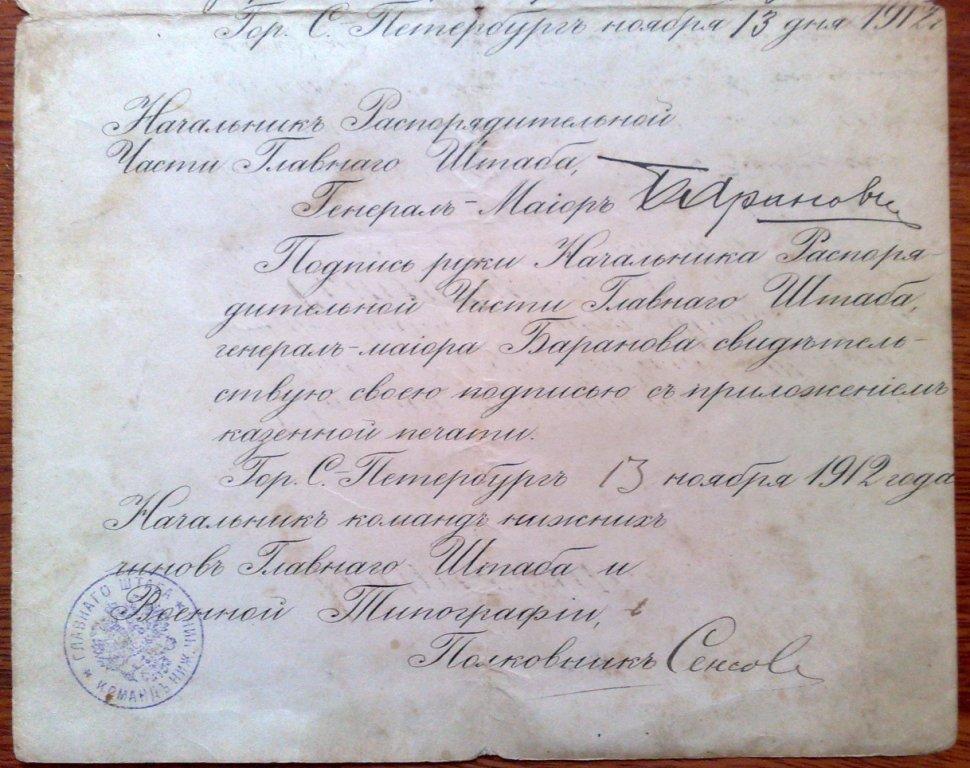 Гор. С. Петербургъ ноября 13 дня 1912 г.
Начальникъ Распорядительной
Части Главнаго Штаба,
Генералъ-Маіоръ Барановъ
Подпись руки Начальника Распоря-
дительной Части Главнаго Штаба,
генералъ-маіора Баранова свидѣтель-
ствую своею подписью съ приложеніемъ
казенной печати.
Гор. С.-Петербургъ 13 ноября 1912 года
Начальникъ командъ нижнихъ
чиновъ Главнаго Штаба и
Военной Типографіи,
Полковникъ
ГЛАВНАГО ШТАБА
КОМАНДЪ НИЖ.